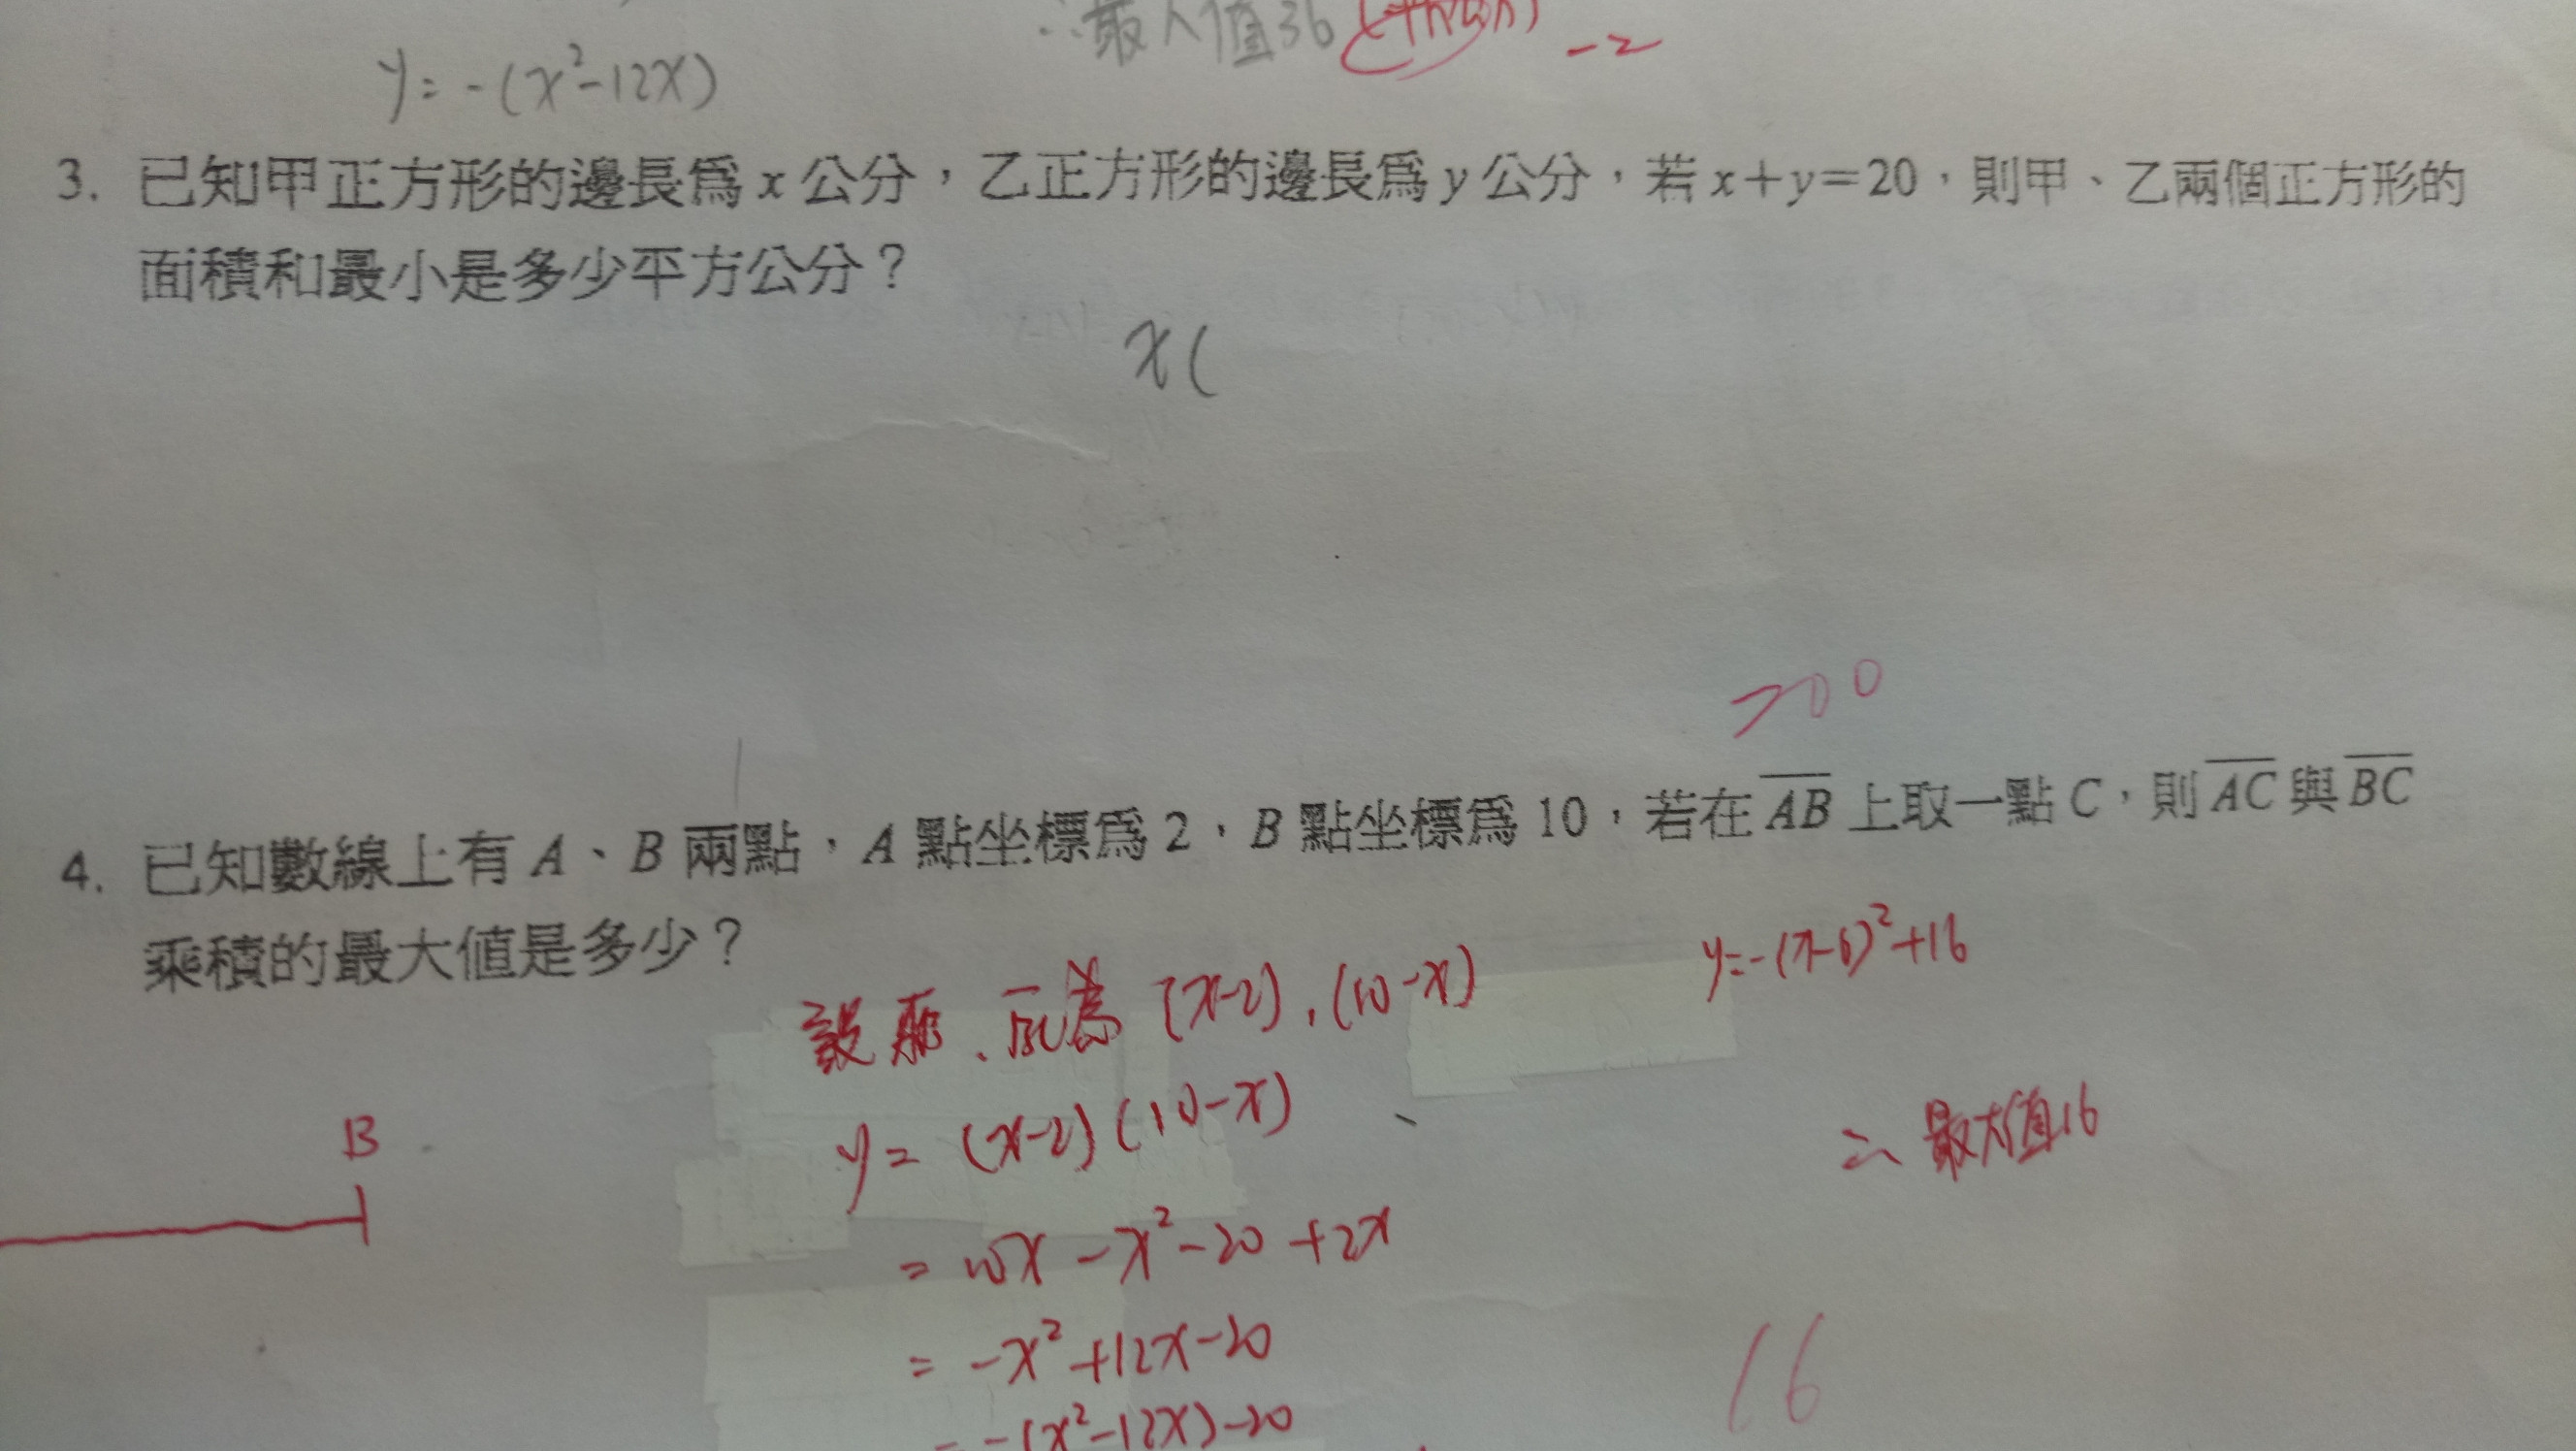 ∴最大值36 -2
y=-(x²-12x)
3. 已知甲正方形的邊長爲 x 公分，乙正方形的邊長爲 y 公分，若 x+y=20，則甲、乙兩個正方形的
面積和最小是多少平方公分？
x(
200
4. 已知數線上有 A、B 兩點，A 點坐標爲 2，B 點坐標爲 10，若在 A̅B̅ 上取一點 C，則 A̅C̅ 與 B̅C̅
乘積的最大值是多少？
設 A̅C̅、B̅C̅為 (x-2),(10-x)
y=-(x-6)²+16
y=(x-2)(10-x)
∴最大值16
B
=10x-x²-20+2x
=-x²+12x-20
16
=-(x²-12x)-20